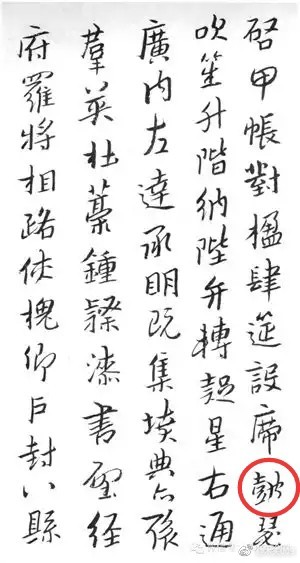 啓甲帳對楹肆筵設席鼓瑟
吹笙升階納陛弁轉疑星右通
廣内左達承明既集墳典亦聚
羣英杜藁鍾隸漆書壁經
府羅將相路俠槐卿戶封八縣